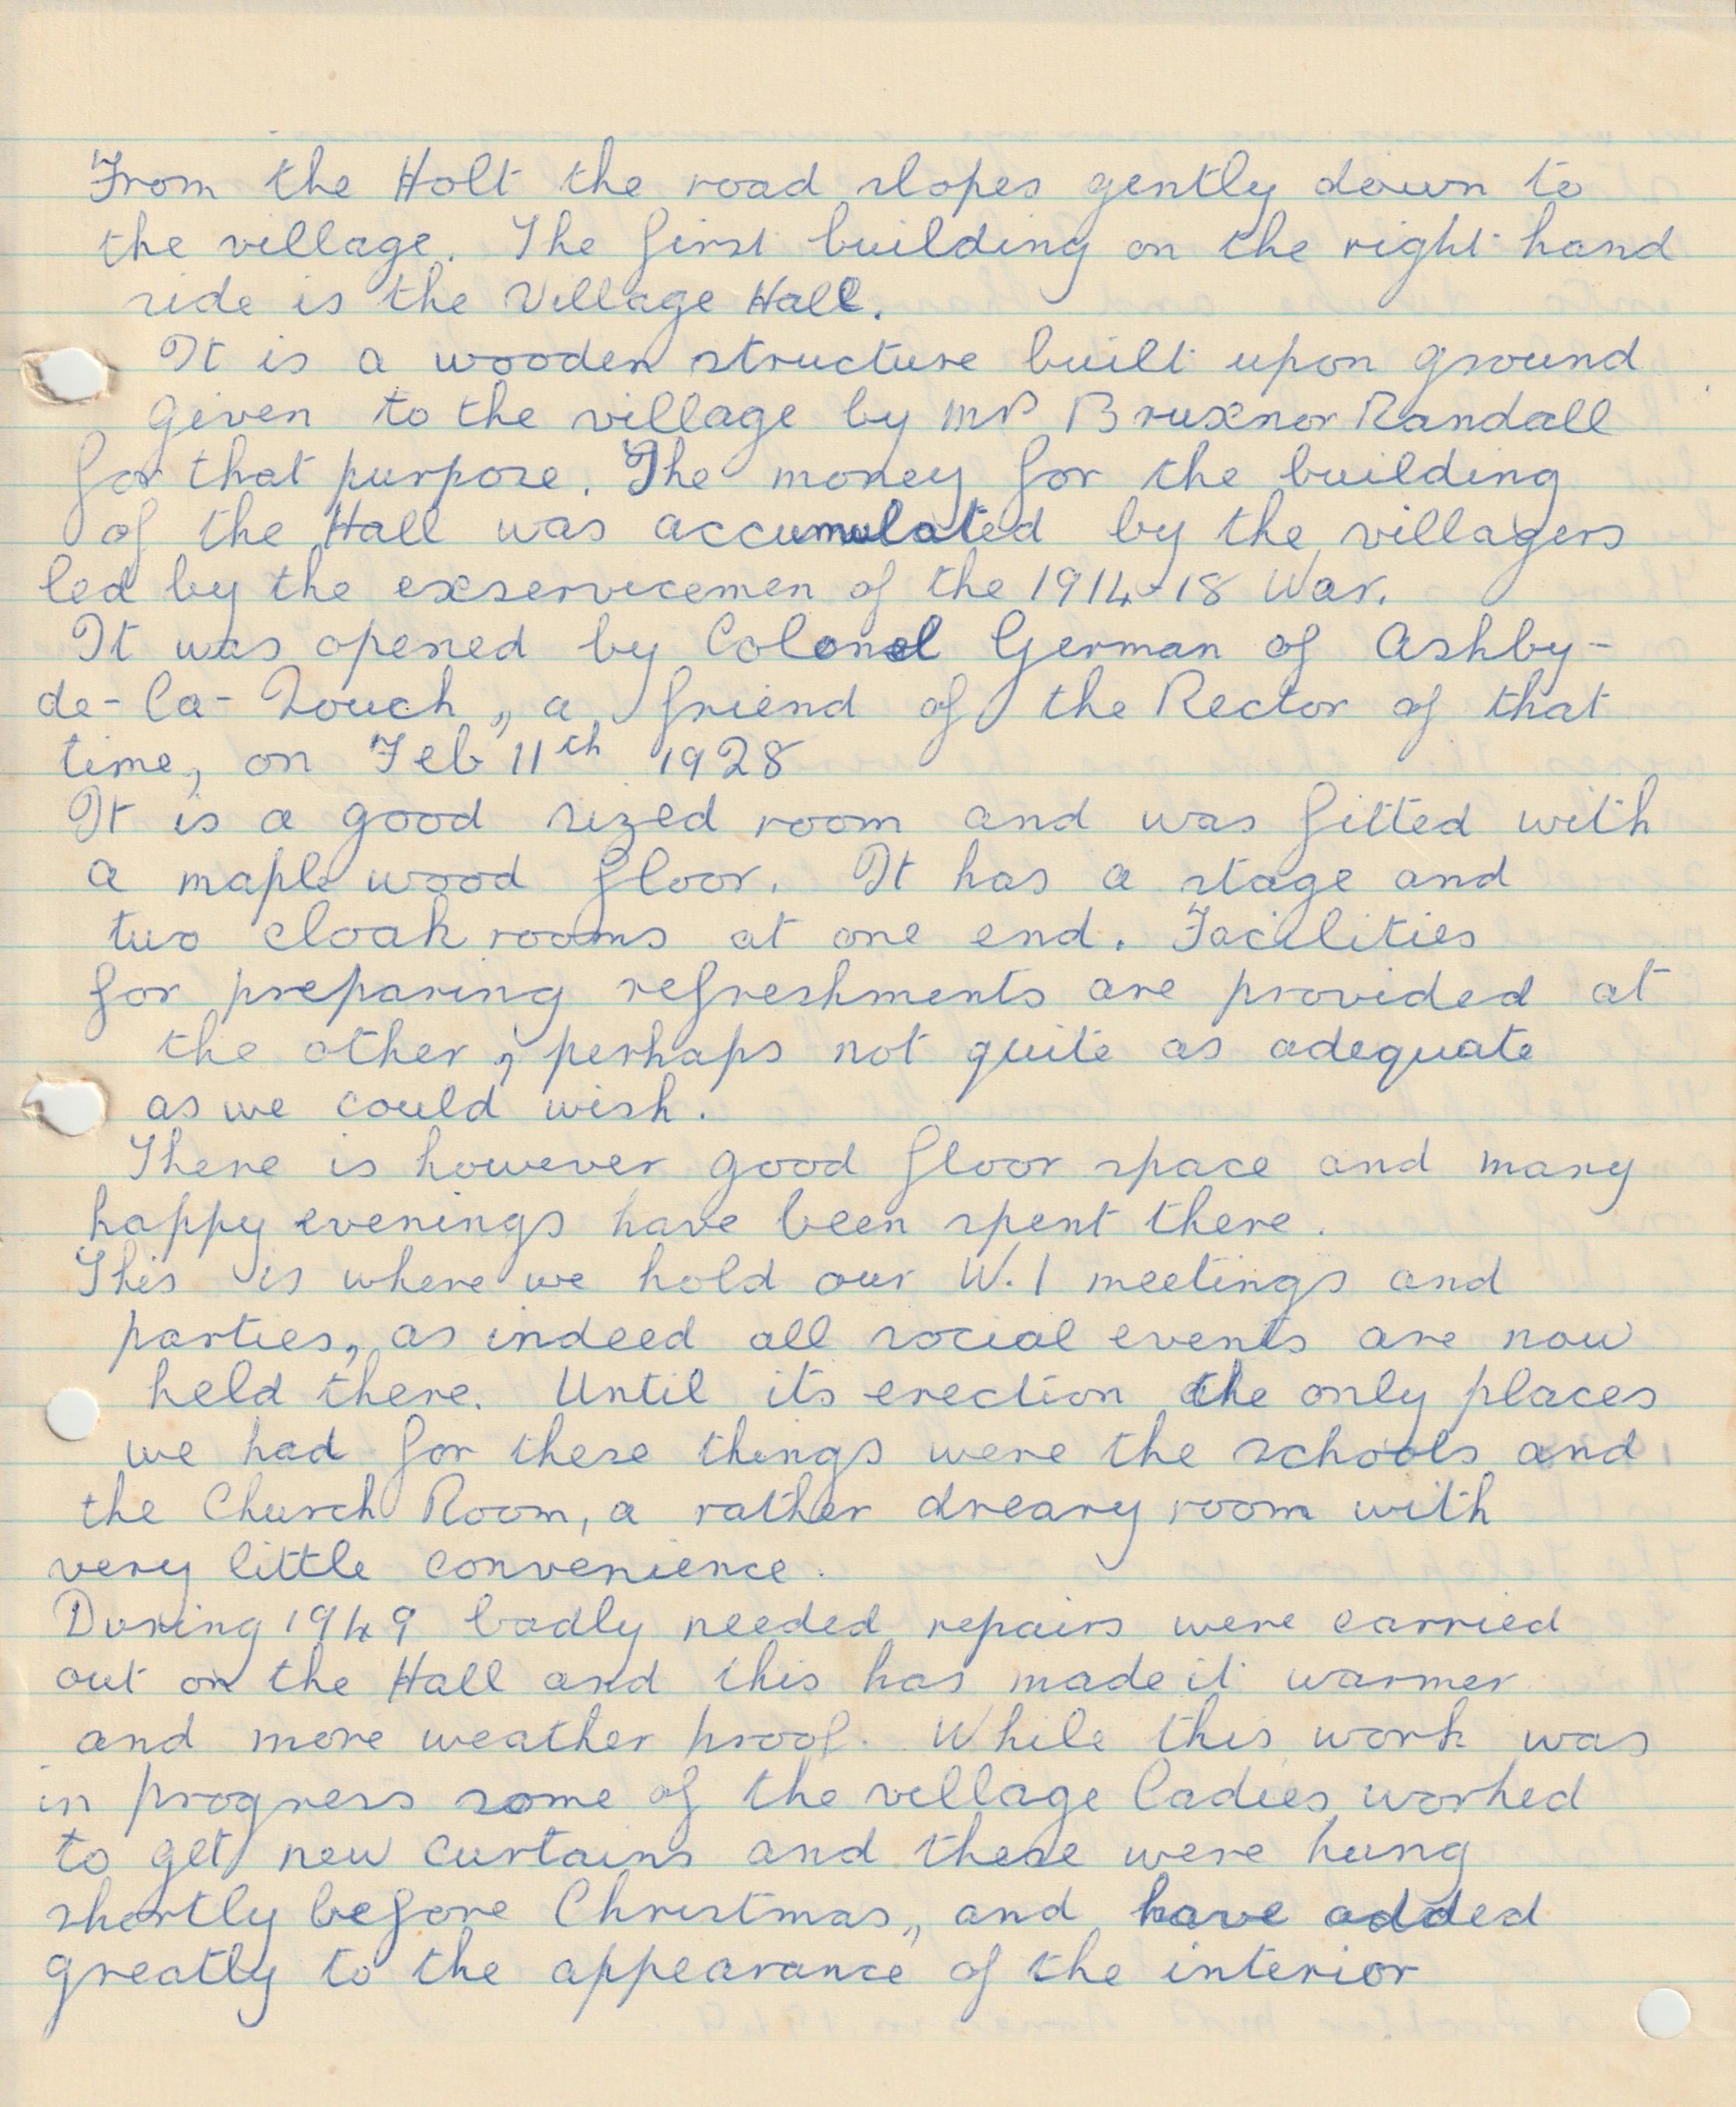 From the Holt the road slopes gently down to
the village. The first building on the right hand
side is the Village Hall.
It is a wooden structure built upon ground
given to the village by Mr Bruxner Randall
for that purpose. The money for the building
of the Hall was accumulated by the villagers
led by the exservicemen of the 1914-18 War.
It was opened by Colonel German of Ashby-
de-la-Zouch, a friend of the Rector of that
time, on Feb 11th 1928
It is a good sized room and was fitted with
a maple wood floor. It has a stage and
two cloak rooms at one end. Facilities
for preparing refreshments are provided at
the other, perhaps not quite as adequate
as we could wish.
There is however good floor space and many
happy evenings have been spent there.
This is where we hold our W.I meetings and
parties, as indeed all social events are now
held there. Until its erection the only places
we had for these things were the schools and
the Church Room, a rather dreary room with
very little convenience.
During 1949 badly needed repairs were carried
out on the Hall and this has made it warmer
and more weather proof. While this work was
in progress some of the village ladies worked
to get new curtains and these were hung
shortly before Christmas, and have added
greatly to the appearance of the interior